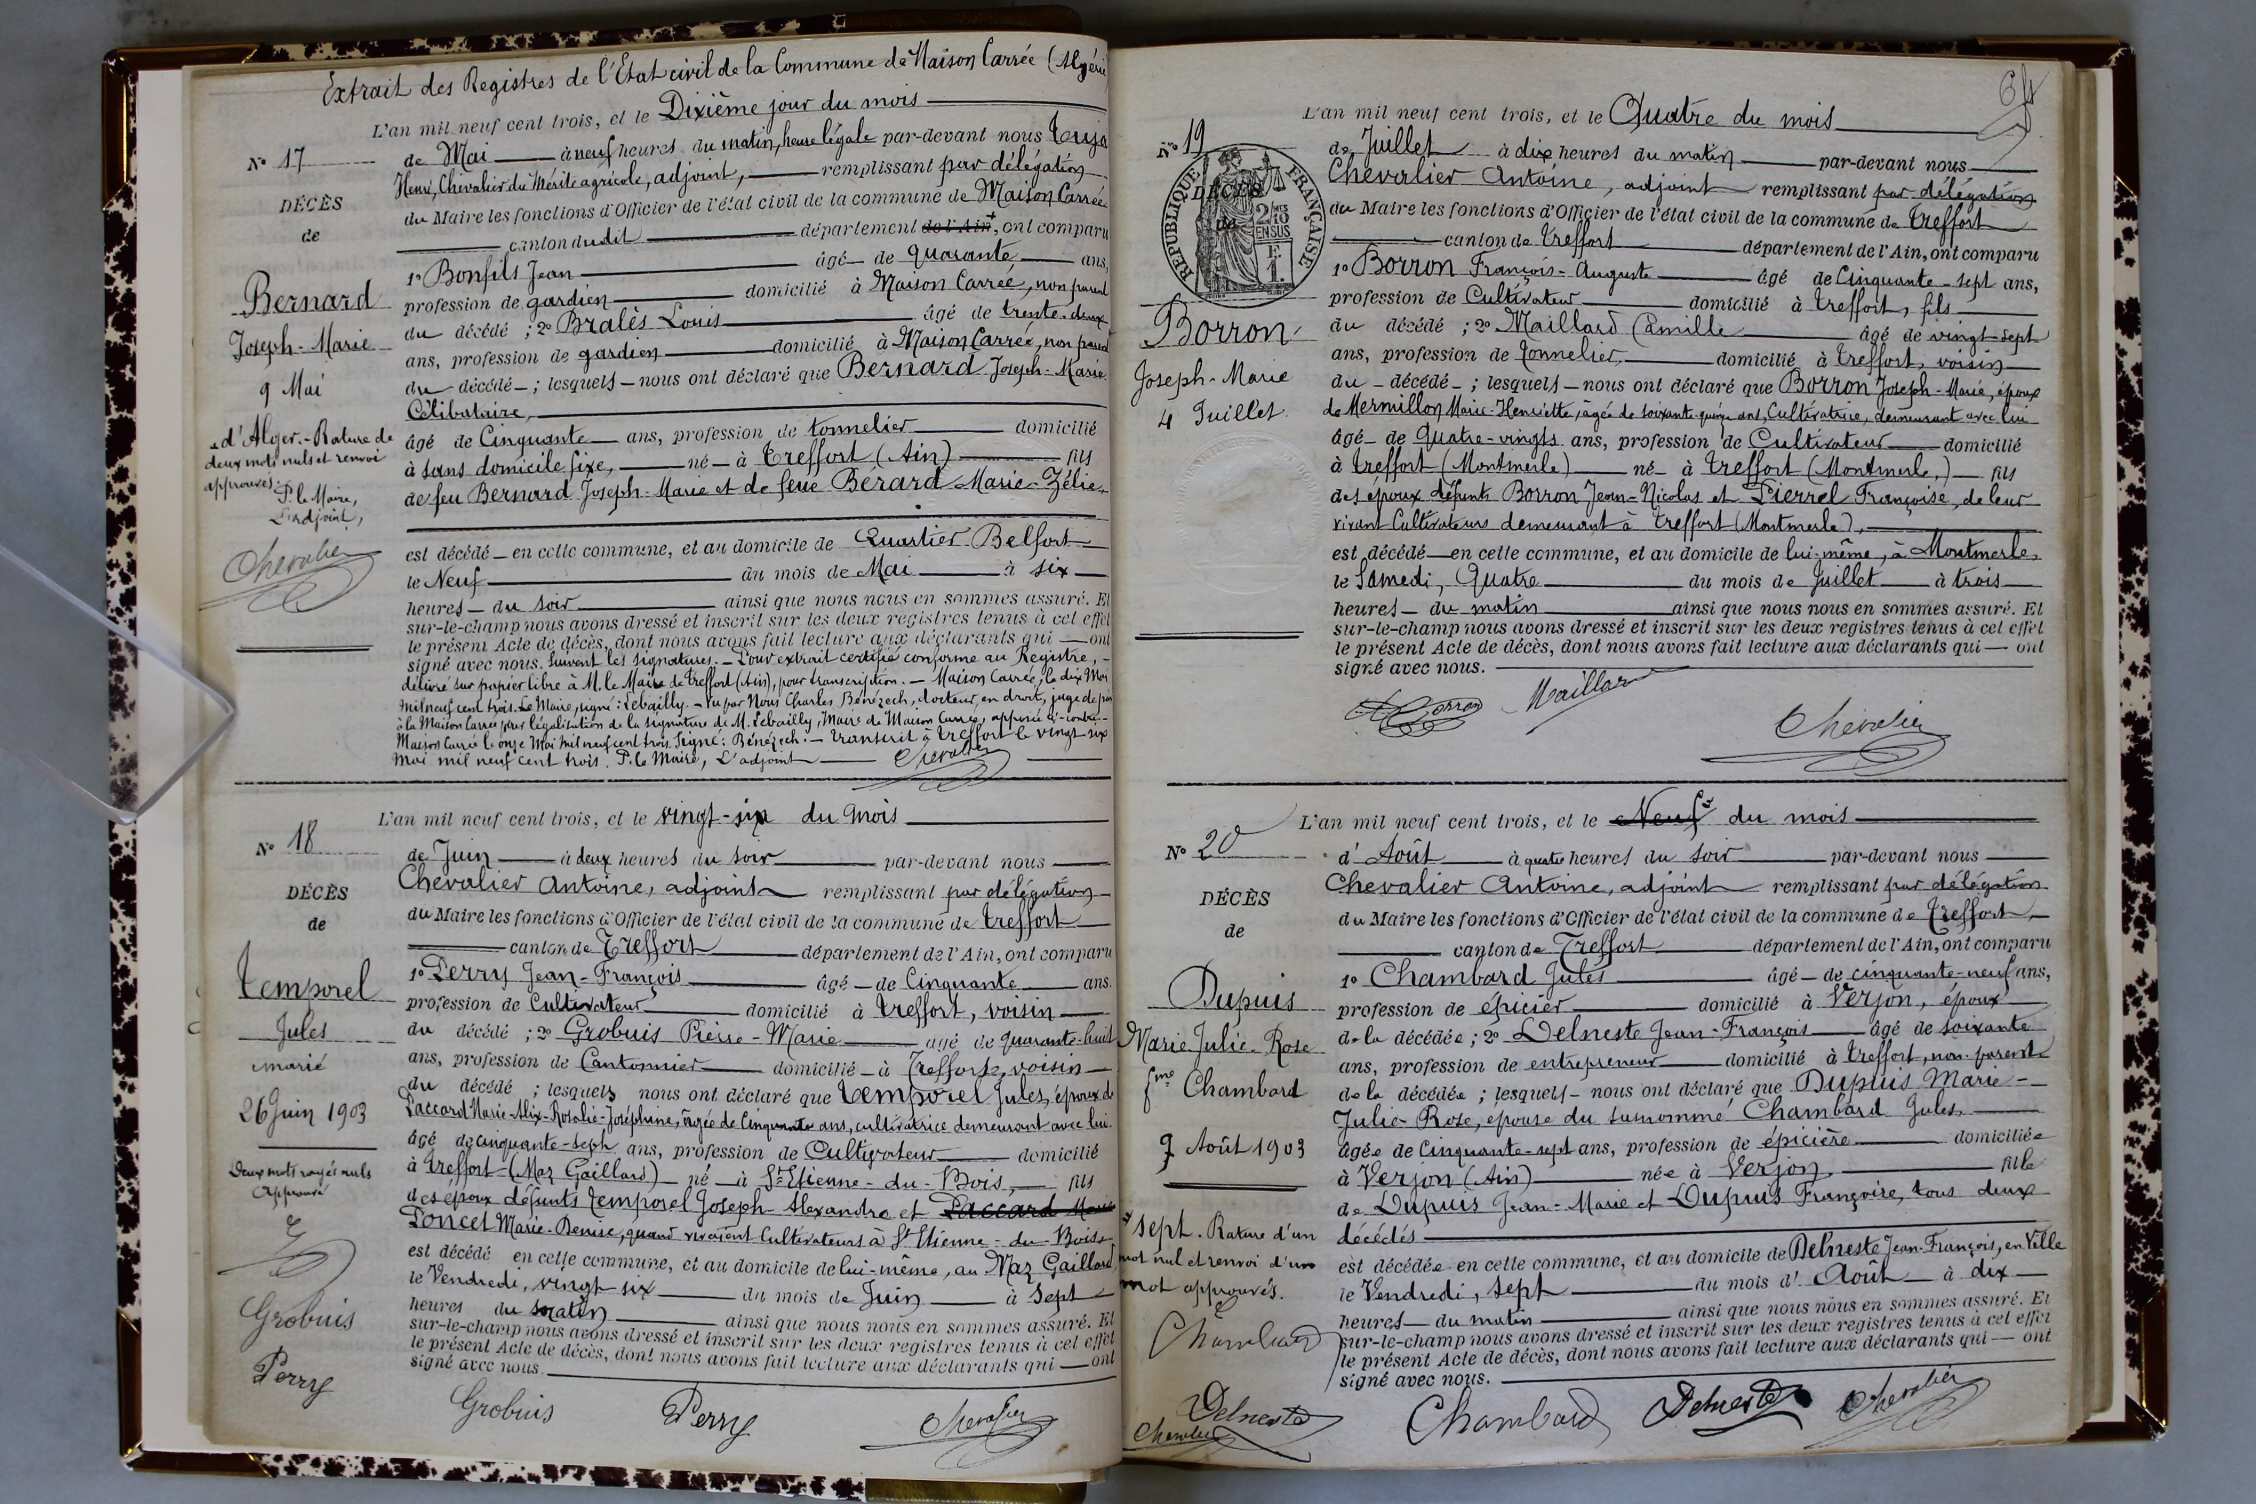 Extrait des Registres de l'État civil de la Commune de Maison Carrée (Algérie
L'an mil neuf cent trois, et le Dixième jour du mois
N° 17
de Mai à neuf heures du matin, heure légale par-devant nous
Henri, Chevalier du Mérite agricole, adjoint, remplissant par délégation
DÉCÈS
du Maire les fonctions d'Officier de l'état civil de la commune de Maison Carrée
de
canton dudit département de l'Ain, ont comparu
1° Bonfils Jean âgé de quarante ans,
Bernard
profession de gardien domicilié à Maison Carrée, non parent
du décédé ; 2° Bralès Louis âgé de trente-deux
Joseph-Marie
ans, profession de gardien domicilié à Maison Carrée, non parent
du décédé ; lesquels nous ont déclaré que Bernard Joseph-Marie
9 Mai
Célibataire,
d'Alger. - Rature de
deux mots nuls et renvoi
approuvés.
P. le Maire,
L'adjoint,
Chevalier
âgé de Cinquante ans, profession de tonnelier domicilié
à sans domicile fixe, né à Treffort (Ain) fils
de feu Bernard Joseph-Marie et de feue Bérard Marie-Zélie
est décédé en cette commune, et au domicile de Quartier Belfort
le Neuf du mois de Mai à six
heures du soir ainsi que nous nous en sommes assuré. Et
sur-le-champ nous avons dressé et inscrit sur les deux registres tenus à cet effet
le présent Acte de décès, dont nous avons fait lecture aux déclarants qui ont
signé avec nous. Suivent les signatures. - Pour extrait certifié conforme au Registre, -
délivré sur papier libre à M. le Maire de Treffort (Ain), pour transcription. - Maison Carrée, le dix Mai
mil neuf cent trois. Le Maire, signé : Lebailly. - Vu par Nous Charles Bénézech, docteur en droit, juge de paix
à la Maison Carrée pour légalisation de la signature de M. Lebailly, Maire de Maison Carrée, apposée ci-contre -
Maison Carrée le onze Mai mil neuf cent trois. Signé : Bénézech. - Transcrit à Treffort le vingt-six
mai mil neuf cent trois. P. le Maire, L'adjoint Chevalier
L'an mil neuf cent trois, et le vingt-six du mois
N° 18
de Juin à deux heures du soir par-devant nous
Chevalier Antoine, adjoint remplissant par délégation
DÉCÈS
du Maire les fonctions d'Officier de l'état civil de la commune de Treffort
de
canton de Treffort département de l'Ain, ont comparu
1° Perry Jean-François âgé de Cinquante ans.
Temporel
profession de Cultivateur domicilié à Treffort, voisin
Jules
du décédé ; 2° Grobuis Pierre-Marie âgé de quarante-huit
marié
ans, profession de Cantonnier domicilié à Treffort, voisin
du décédé ; lesquels nous ont déclaré que Temporel Jules, époux de
26 Juin 1903
Paccard Marie-Alix-Rosalie-Joséphine, âgée de Cinquante ans, cultivatrice demeurant avec lui
âgé de cinquante-sept ans, profession de Cultivateur domicilié
Deux mots rayés nuls
Approuvé
à Treffort (Maz Gaillard) né à St Etienne-du-Bois, fils
des époux défunts Temporel Joseph-Alexandre et Paccard Marie
Poncet Marie-Denise, quand vivaient Cultivateurs à St Etienne-du-Bois
est décédé en cette commune, et au domicile de lui-même, au Maz Gaillard
le Vendredi, vingt six du mois de Juin à sept
Grobuis
heures du matin ainsi que nous nous en sommes assuré. Et
sur-le-champ nous avons dressé et inscrit sur les deux registres tenus à cet effet
le présent Acte de décès, dont nous avons fait lecture aux déclarants qui ont
Perry
signé avec nous.
Grobuis Perry Chevalier
64
L'an mil neuf cent trois, et le Quatre du mois
N° 19
de Juillet à dix heures du matin par-devant nous
Chevalier Antoine, adjoint remplissant par délégation
DÉCÈS
RÉPUBLIQUE FRANÇAISE
2/10 EN SUS
F 1
du Maire les fonctions d'Officier de l'état civil de la commune de Treffort
canton de Treffort département de l'Ain, ont comparu
1° Borron François-Auguste âgé de Cinquante-sept ans,
profession de Cultivateur domicilié à Treffort, fils
Borron
du décédé ; 2° Maillard Camille âgé de vingt-sept
ans, profession de tonnelier, domicilié à Treffort, voisin
Joseph-Marie
du décédé ; lesquels nous ont déclaré que Borron Joseph-Marie, époux
4 Juillet
de Mermillon Marie-Henriette, âgée de soixante-quinze ans, Cultivatrice, demeurant avec lui
âgé de Quatre-vingts ans, profession de Cultivateur domicilié
à Treffort (Montmerle) né à Treffort (Montmerle,) fils
des époux défunts Borron Jean-Nicolas et Pierrel Françoise, de leur
vivant Cultivateurs demeurant à Treffort (Montmerle),
est décédé en cette commune, et au domicile de lui-même, à Montmerle,
le Samedi, Quatre du mois de Juillet à trois
heures du matin ainsi que nous nous en sommes assuré. Et
sur-le-champ nous avons dressé et inscrit sur les deux registres tenus à cet effet
le présent Acte de décès, dont nous avons fait lecture aux déclarants qui ont
signé avec nous.
Borron Maillard Chevalier
L'an mil neuf cent trois, et le Neuf du mois
N° 20
d'Août à quatre heures du soir par-devant nous
Chevalier Antoine, adjoint remplissant par délégation
DÉCÈS
du Maire les fonctions d'Officier de l'état civil de la commune de Treffort
de
canton de Treffort département de l'Ain, ont comparu
1° Chambard Jules âgé de cinquante-neuf ans,
Dupuis
profession de épicier domicilié à Verjon, époux
de la décédée ; 2° Delneste Jean-François âgé de soixante
Marie Julie-Rose
ans, profession de entrepreneur domicilié à Treffort, non-parent
fme Chambard
de la décédée ; lesquels nous ont déclaré que Dupuis Marie-
Julie-Rose, épouse du surnommé Chambard Jules,
7 Août 1903
âgée de Cinquante-sept ans, profession de épicière domiciliée
à Verjon (Ain) née à Verjon, fille
de Dupuis Jean-Marie et Dupuis Françoise, tous deux
sept. Rature d'un
mot nul et renvoi d'un
mot approuvés.
décédés
est décédée en cette commune, et au domicile de Delneste Jean-François, en Ville
le Vendredi, sept du mois d'Août à dix
heures du matin ainsi que nous nous en sommes assuré. Et
Chambard
sur-le-champ nous avons dressé et inscrit sur les deux registres tenus à cet effet
le présent Acte de décès, dont nous avons fait lecture aux déclarants qui ont
signé avec nous.
Delneste
Chevalier
Chambard Delneste Chevalier